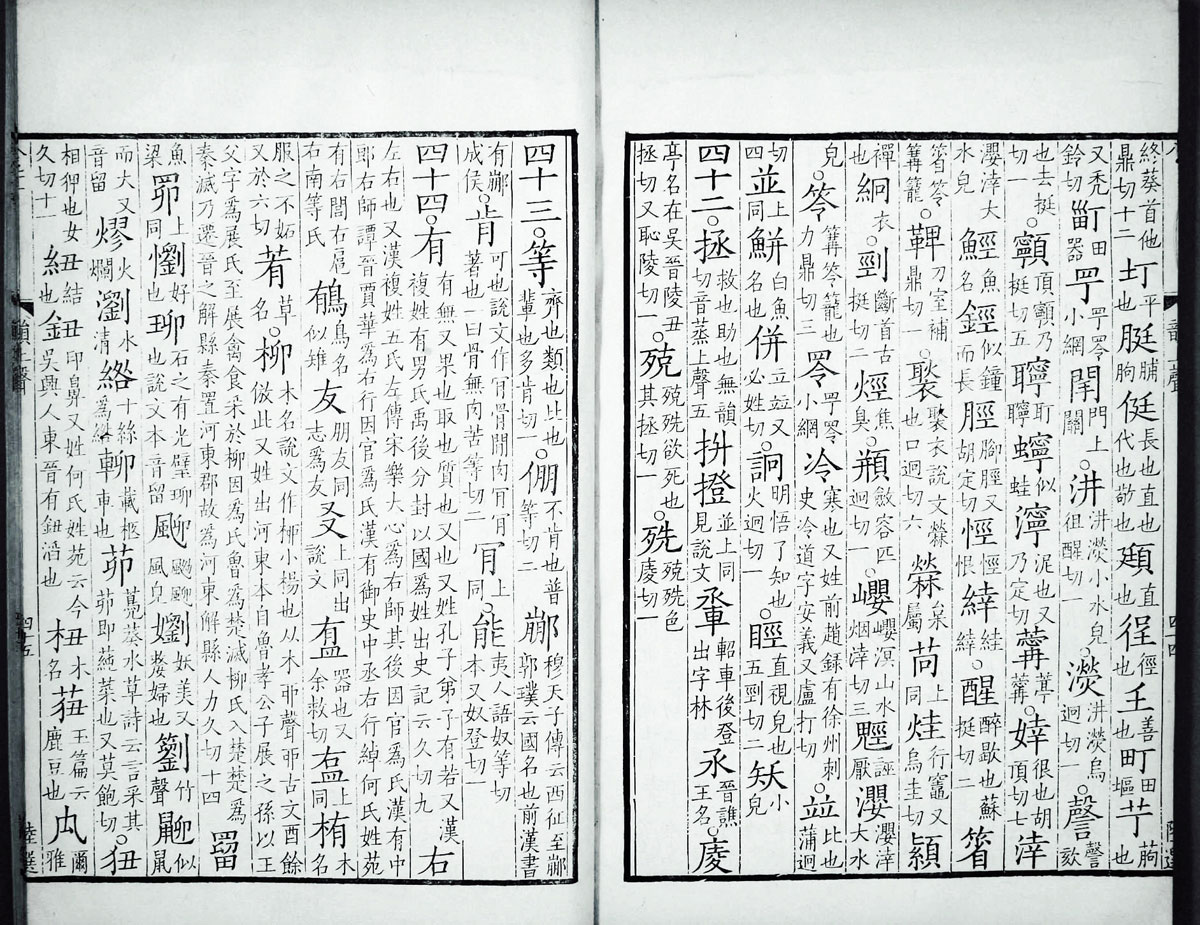 終葵首他鼎切十二圢平也脡脯朐侹長也直也代也敬也頲直也徎徑也𡈼善也町田塸艼葋也
又禿鈴切甼田器䍈䍈䍥小網閮門上關○汫汫濙小水皃徂醒切一○濙汫濙烏迥切一○謦謦欬
也去挺切一○顐頂顐乃挺切五聹耵聹𧓃似蛙濘泥也又乃定切薴葶薴○婞很也胡頂切七涬
瀴涬大水皃鯹魚名鋞似鐘而長脛腳脛又胡定切悻悻恨緈緈絓○醒醉歇也蘇挺切二箵
箵笭篝籠○鞞刀室補鼎切一○褧褧衣說文檾也口迥切六檾枲屬苘上同烓行竈又烏圭切熲
絅襌衣也○剄斷首古挺切二㷡焦臭○頩斂容匹迥切一○巊巊溟山水烟涬切三䰢誣厭瀴瀴涬大水
皃○笭篝笭籠也力鼎切三䍥䍈䍥小網冷寒也又姓前趙錄有徐州刺史冷道字安義又盧打切○竝比也蒲迥
切四並上同鮩白魚名也併立竝又必姓切○詗明悟了知也火迥切一○𥆞直視皃也五剄切二𥎤小皃
四十二○拯救也助也無韻切音蒸上聲五抍撜並上同見說文𨋬軺車後登出字林氶晉譙王名○庱
亭名在吳晉陵丑拯切又恥陵切一○殑殑殑欲死也其拯切一○殅殑殅色庱切一
四十三○等齊也類也比也輩也多肯切一○倗不肯也普等切二䣙穆天子傳云西征至䣙郭璞云國名也前漢書
有䣙成侯○肯可也說文作肎骨閒肉肎肎著也一曰骨無肉苦等切二肎上同○能夷人語奴等切本又奴登切一
四十四○有有無又果也取也質也又也又姓孔子弟子有若又漢複姓有男氏禹後分封以國爲姓出史記云久切九右
左右也又漢複姓五氏左傳宋樂大心爲右師其後因官爲氏漢有中郎右師譚晉賈華爲右行因官爲氏漢有御史中丞右行綽何氏姓苑
有右閭右扈右南等氏䳑鳥名似雉友朋友同志爲友㕛上同出說文盇器也又余救切𥁓上同栯木名
服之不妬又於六切䓴草名○柳木名說文作桺小楊也从木丣聲丣古文酉餘倣此又姓出河東本自魯孝公子展之孫以王
父字爲展氏至展禽食采於柳因爲氏魯爲楚滅柳氏入楚楚爲秦滅乃遷晉之解縣秦置河東郡故爲河東解縣人力久切十四罶
魚梁罶上同懰好也珋石之有光璧珋也說文本音留飀颼飀風皃嬼妖美又嫠婦也䉧竹聲鼺似鼠
而大又音留熮火爛瀏水清綹十絲爲綹䡀載柩車也茆鳧葵水草詩云言采其茆即蓴菜也又莫飽切○狃
相狎也女久切十一紐結也丑印鼻又姓何氏姓苑云今吳興人東晉有鈕滔也杻木名莥玉篇云鹿豆也爾雅